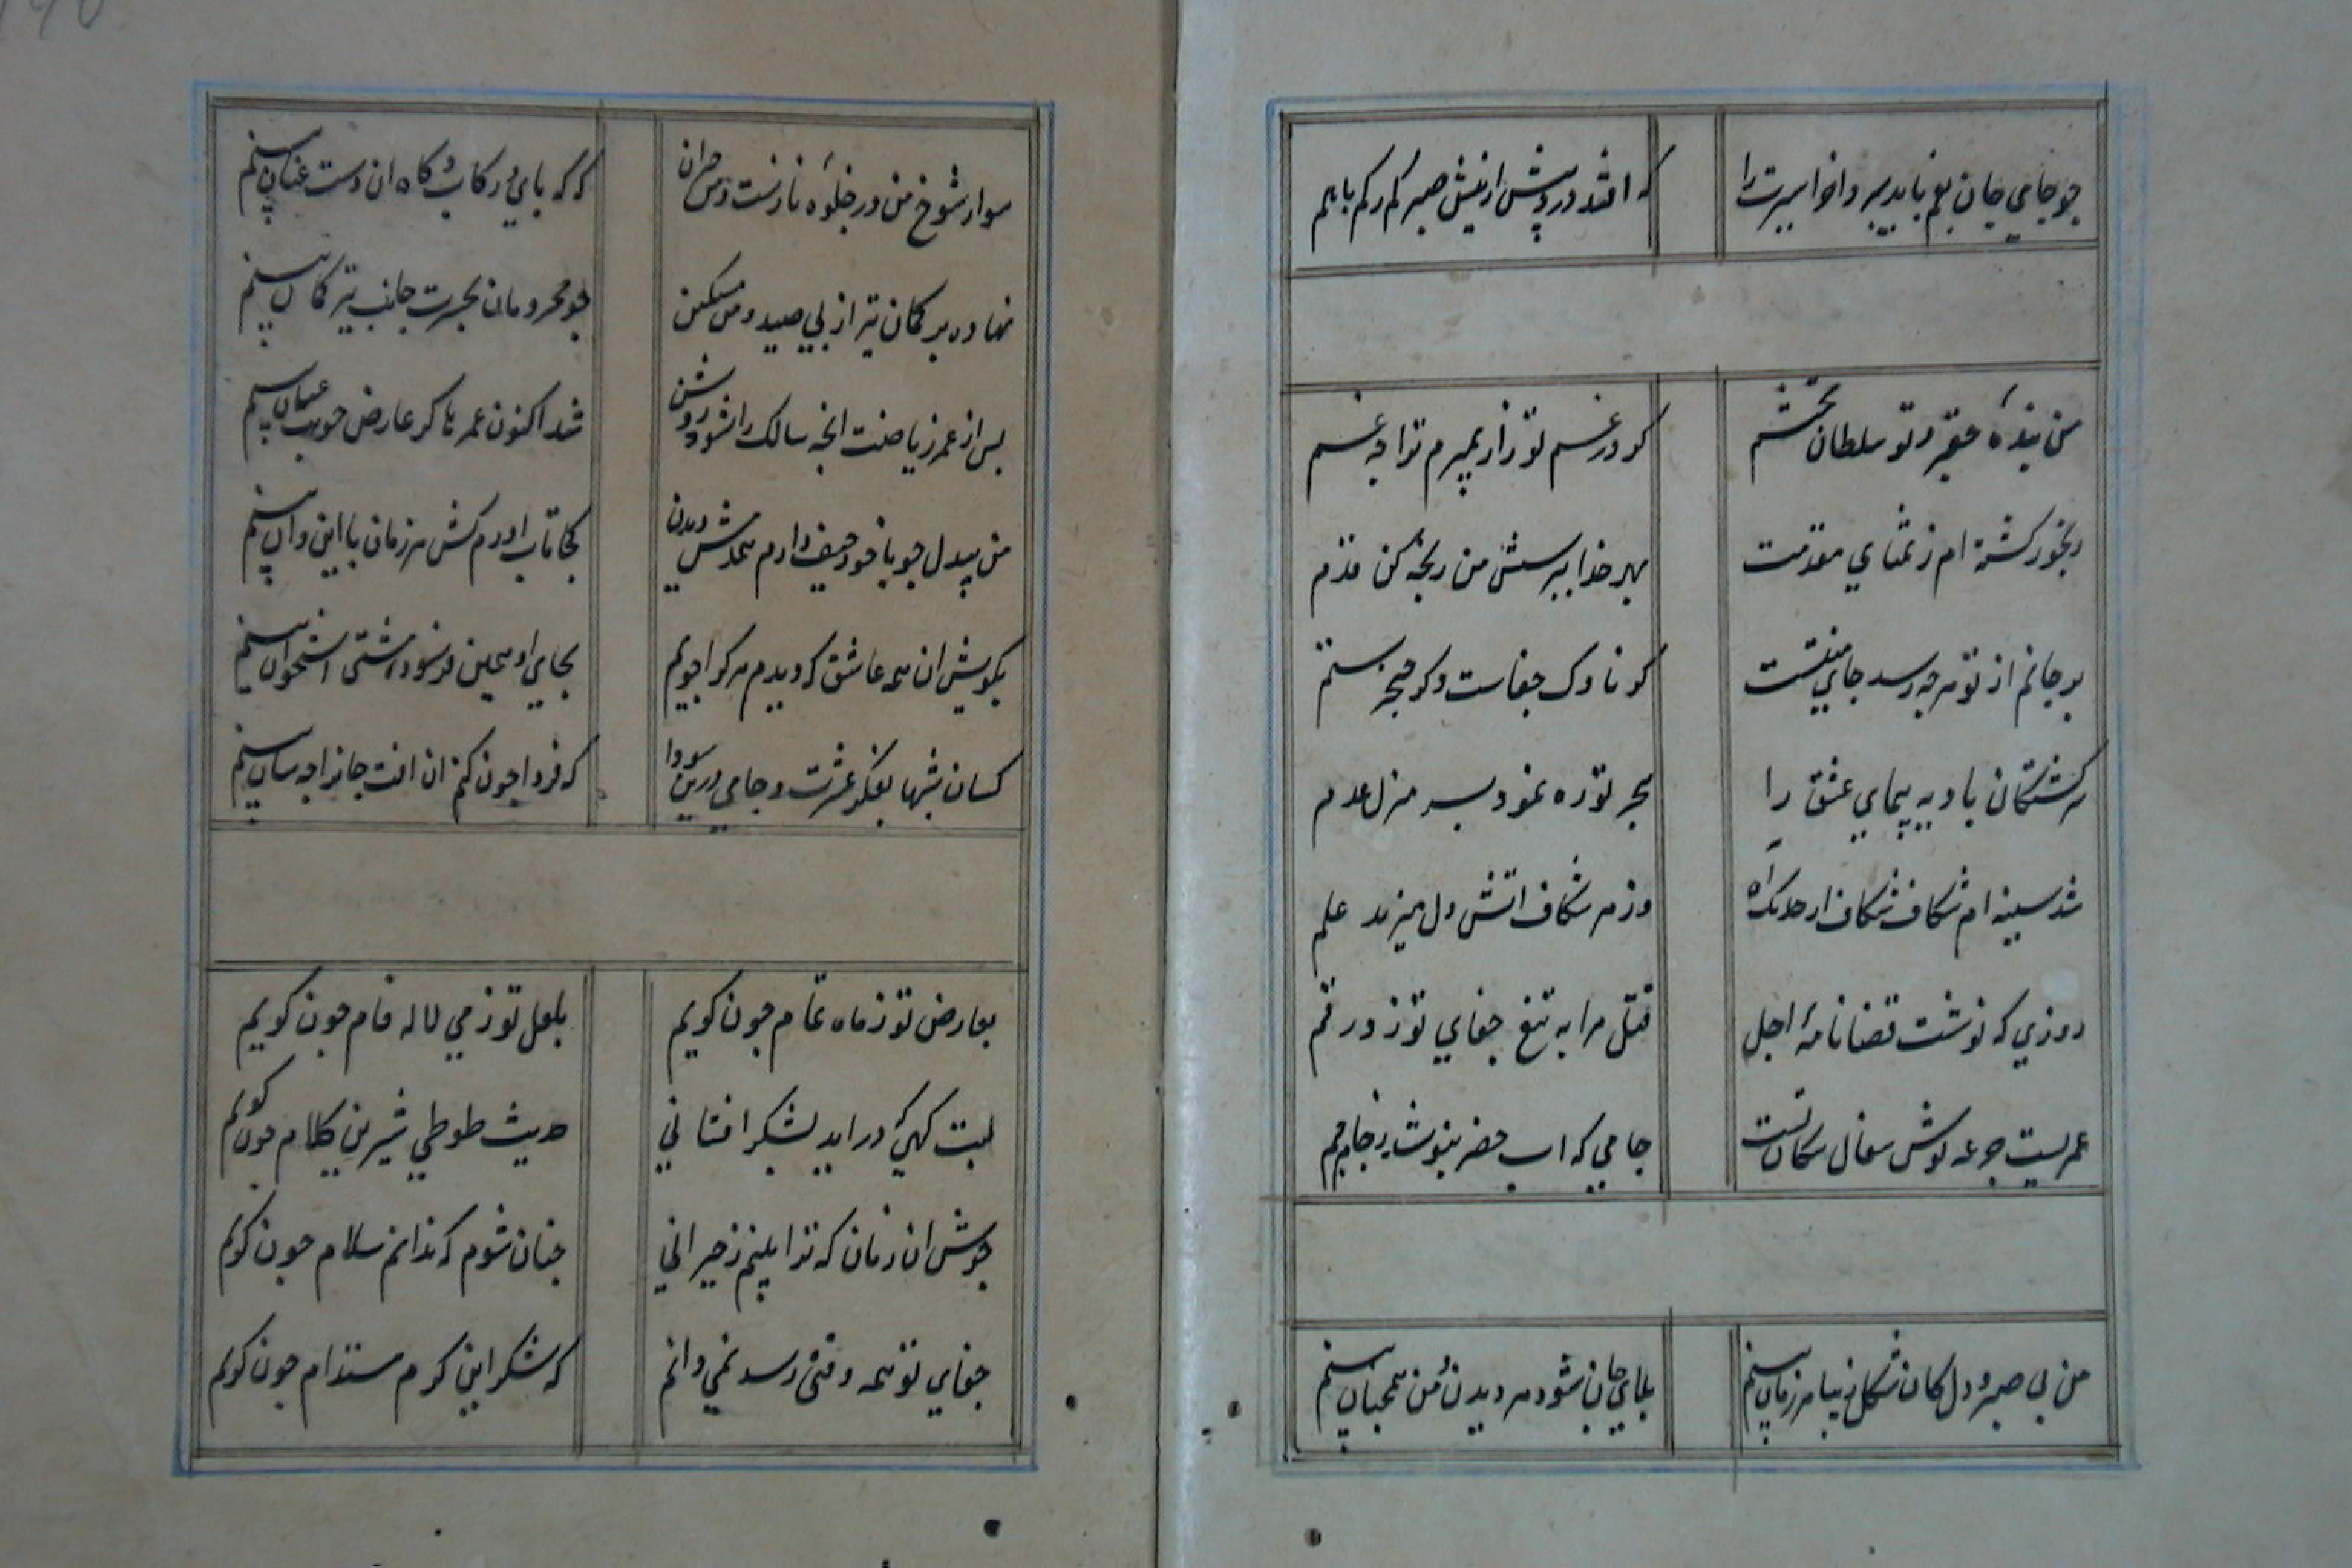 چو جامي جان بغم بايد سپرد اخر اسيرت را
که افتد در پيش از نيش صبر کم رکم بايم
من بنده حقير و تو سلطان محتشم
کر در غم تو زار بميرم ترا چه غم
رنجور کشته ام ز تمناي مقدمت
بهر خدا بپرسش من رنجه کن قدم
بر جانم از تو هرچه رسد جاي منتست
کر ناوک جفاست و کر خنجر ستم
سرکشتکان باديه پيماي عشق را
هجر تو ره نمود بسر منزل عدم
شد سينه ام شکاف شکاف از خدنک اه
وز هر شکاف اتش دل ميزند علم
روزي که نوشت قضا نامۀ اجل
قتل مرا به تيغ جفاي تو زد رقم
عمريست جرعه نوش سفال سکان تست
جامي که اب خضر ننوشد ز جام جم
من بي صبر و دل کان شکل زيبا هر زمان بينم
بلاي جان شود هر ديدن و من همچنان بينم
سوار شوخ من در جلوۀ نازست و من حيران
که که پاي در رکاب و کاه ان دست عنان بينم
نهاده بر کمان تير از پي صيد و من مسکين
چو محرومان بحسرت جانب تير و کمان بينم
پس از عمر رياضت انچه سالک را شود روشن
شد اکنون عمرها کز عارض خوبت عيان بينم
من بيدل چو با خود حيف دارم همدمش ديدن
کجا تاب اورم کش هر زمان با اين و ان بينم
بکويش ان همه عاشق که ديدم هر کرا جويم
بجاي او همين فرسوده مشتي استخوان بينم
کسان شبها بفکر عشرت و جامي درين سودا
که فردا چون کنم ان افت جانرا چه سان بينم
بعارض تو ز ماه تمام چون کويم
بلعل تو ز مي لاله فام چون کويم
لبت کهي که در ايد بشکر افشاني
حديث طوطي شيرين کلام چون کويم
خوش ان زمان که ترا بينم ز حيراني
چنان شوم که ندانم سلام چون کويم
جفاي تو همه وقتي رسد نمي دانم
که شکر اين کرم مستدام چون کويم